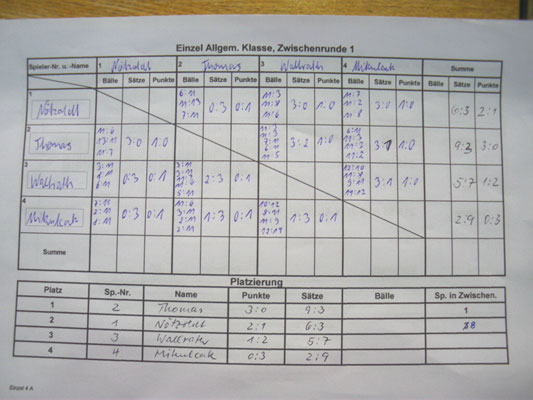 Einzel Allgem. Klasse, Zwischenrunde 1
Spieler-Nr. u. -Name 1 Nötzoldt 2 Thomas 3 Wallrath 4 Mikulcak Summe
Bälle Sätze Punkte Bälle Sätze Punkte Bälle Sätze Punkte Bälle Sätze Punkte Bälle Sätze Punkte
1 Nötzoldt 6:11 11:13 7:11 0:3 0:1 11:3 11:8 11:6 3:0 1:0 11:7 11:2 11:8 3:0 1:0 6:3 2:1
2 Thomas 11:6 13:11 11:7 3:0 1:0 3:2 1:0 3:1 1:0 9:3 3:0
3 Wallrath 0:3 0:1 2:3 0:1 3:1 1:0 5:7 1:2
4 Mikulcak 0:3 0:1 1:3 0:1 1:3 0:1 2:9 0:3
Summe
Platzierung
Platz Sp.-Nr. Name Punkte Sätze Bälle Sp. in Zwischen.
1 2 Thomas 3:0 9:3 1
2 1 Nötzoldt 2:1 6:3 8
3 3 Wallrath 1:2 5:7
4 4 Mikulcak 0:3 2:9
Einzel 4 A